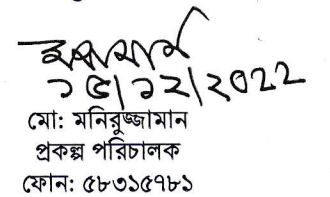 ১৫/১২/২০২২
মো: মনিরুজ্জামান
প্রকল্প পরিচালক
ফোন: ৫৮৩১৫৭৮১